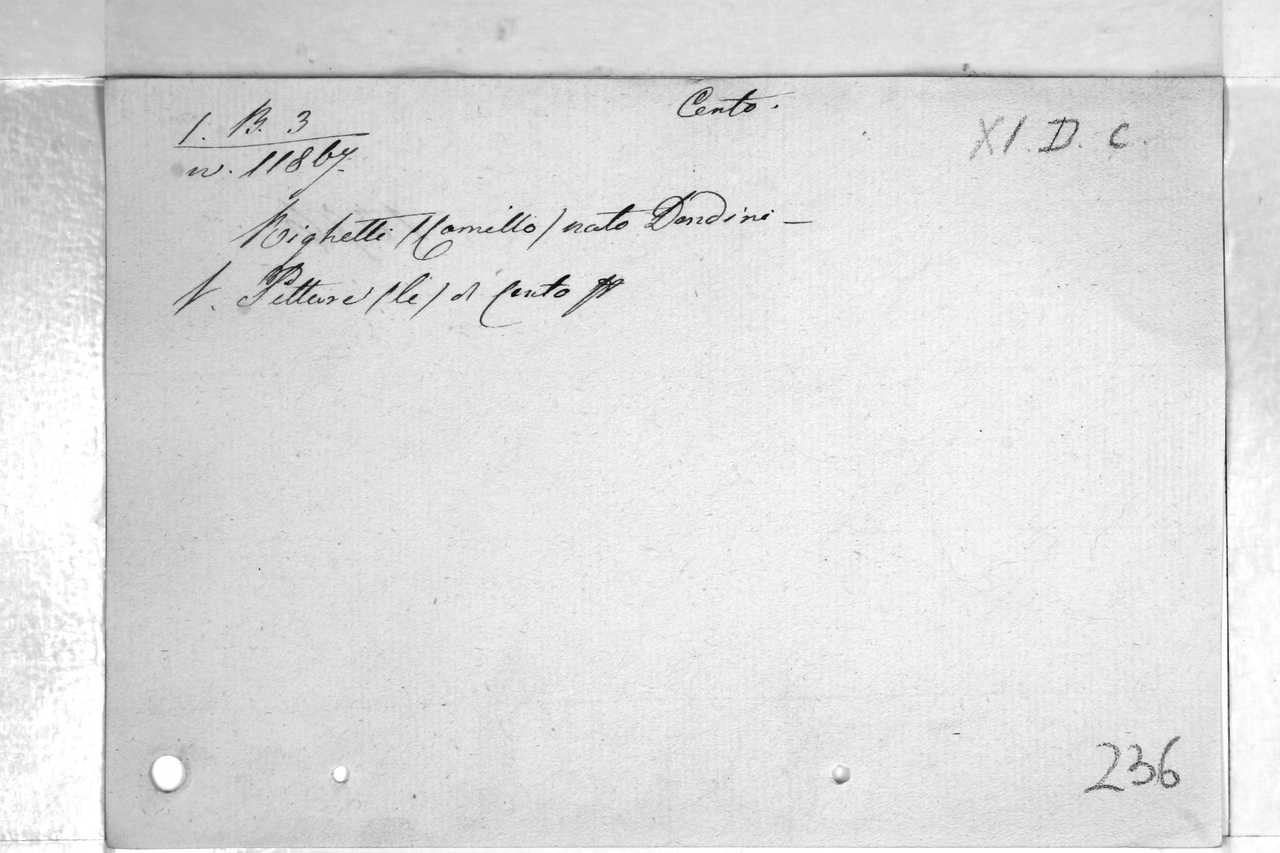 Cento.
XI. D. C.
1. B. 3
n. 11867.
Righetti (Camillo) nato Dondini —
V. Pitture (le) di Cento
236